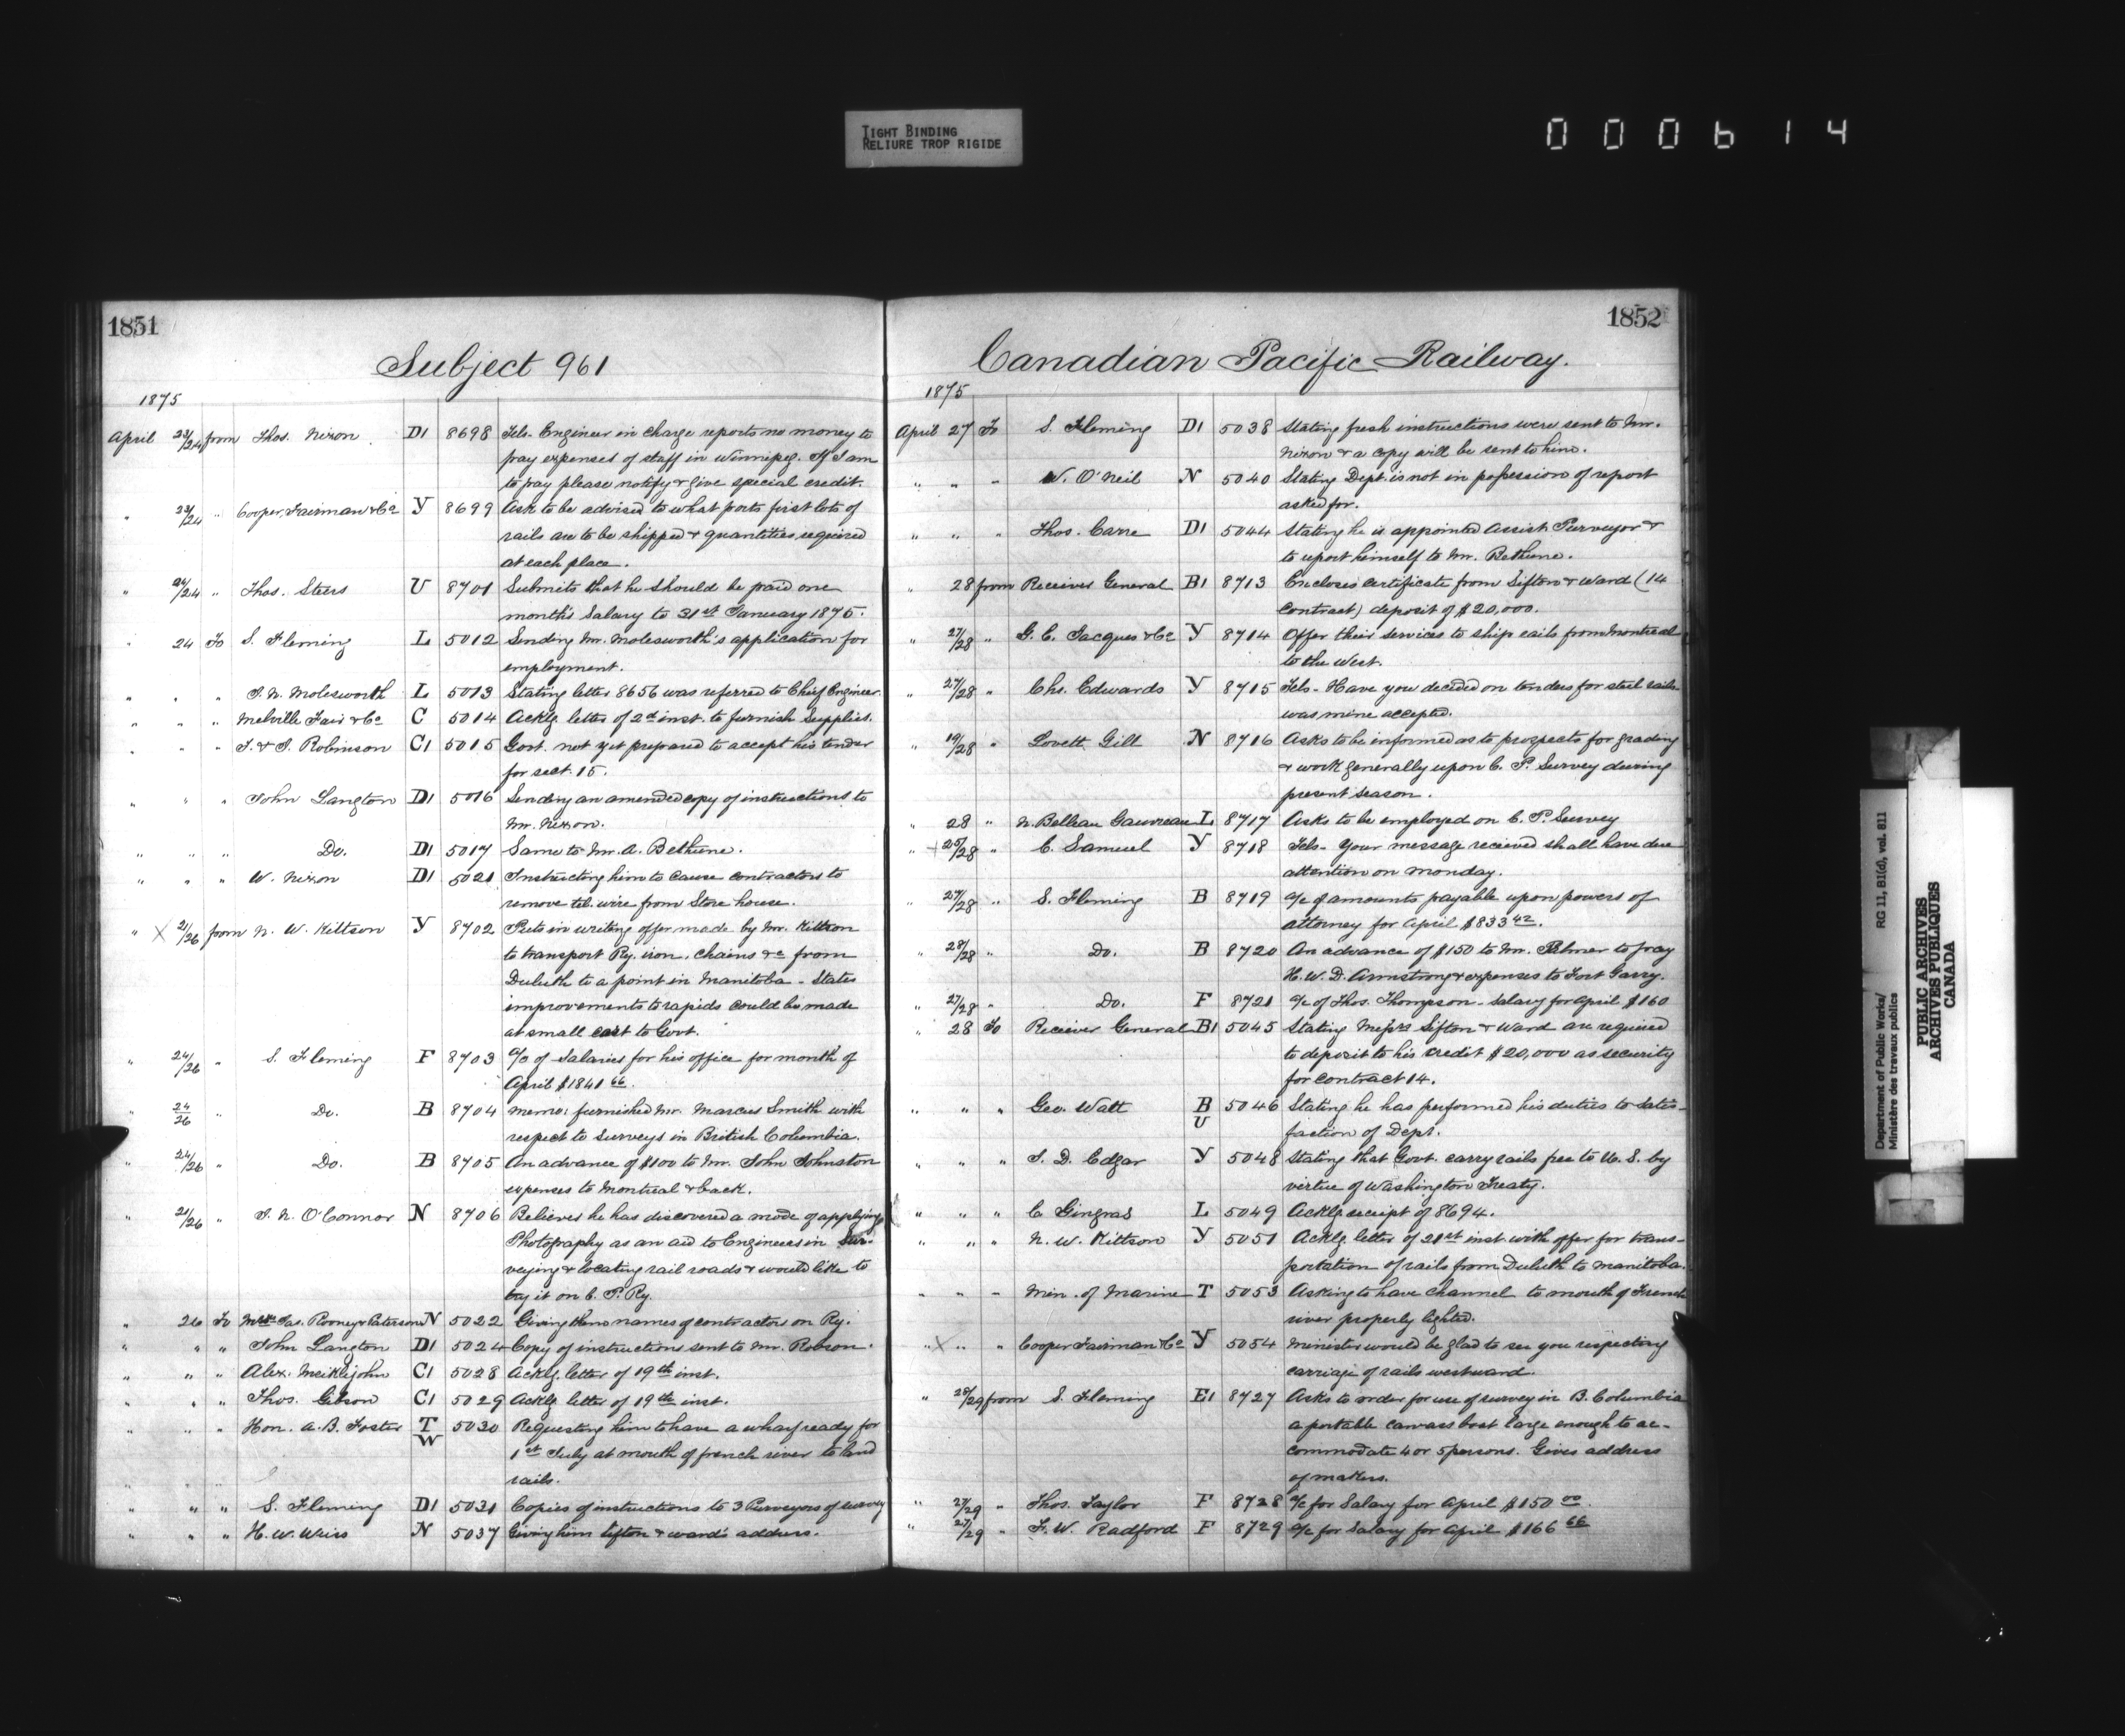 TIGHT BINDING
RELIURE TROP RIGIDE
000614
1851
Subject 961
1875
April 23/24 from Thos. Nixon D1 8698 Tels. Engineer in charge reports no money to
pay expenses of staff in Winnipeg. If I am
to pay please notify & give special credit.
" 23/24 " Cooper, Fairman & Co Y 8699 Ask to be advised to what ports first lots of
rails are to be shipped & quantities required
at each place.
" 24/24 " Thos. Steers U 8701 Submits that he should be paid one
month's Salary to 31st January 1875.
" 24 To S. Fleming L 5012 Sending Mr. Molesworth's application for
employment.
" " " T. N. Molesworth L 5013 Stating letter 8656 was referred to Chief Engineer.
" " " Melville Fair & Co C 5014 Acklg. letter of 2d inst. to furnish Supplies.
" " " T. & J. Robinson C1 5015 Govt. not yet prepared to accept his tender
for sect. 15.
" " " John Langton D1 5016 Sending an amended copy of instructions to
Mr. Nixon.
" " " Do. D1 5017 Same to Mr. A. Bethune.
" " " W. Nixon D1 5021 Instructing him to cause contractors to
remove tel. wire from Store house.
" X 21/26 from N. W. Kittson Y 8702 Puts in writing offer made by Mr. Kittson
to transport Ry. iron, chains &c from
Duluth to a point in Manitoba - States
improvements to rapids could be made
at small cost to Govt.
" 24/26 " S. Fleming F 8703 a/c of Salaries for his office for month of
April $1841 66.
" 24/26 " Do. B 8704 memo: furnished Mr. Marcus Smith with
respect to Surveys in British Columbia.
" 24/26 " Do. B 8705 An advance of $100 to Mr. John Johnston
expenses to Montreal & back.
" 21/26 " J. N. O'Connor N 8706 Believes he has discovered a mode of applying
Photography as an aid to Engineers in Sur-
veying & locating rail roads & would like to
try it on C. P. Ry.
" 26 To Jas. Rooney & Paterson N 5022 Giving them names of contractors on Ry.
" " " John Langton D1 5024 Copy of instructions sent to Mr. Robson.
" " " Alex. Meiklejohn C1 5028 Ackلg. letter of 19th inst.
" " " Thos. Gibson C1 5029 Acklg. letter of 19th inst.
" " " Hon. A. B. Foster T W 5030 Requesting him to have a wharf ready for
1st July at mouth of french river to land
rails.
" " " S. Fleming D1 5031 Copies of instructions to 3 Purveyors of survey
" " " H. W. Weiss N 5037 Giving him Sifton & Ward's address.
1852
Canadian Pacific Railway.
1875
April 27 To S. Fleming D1 5038 Stating fresh instructions were sent to Mr.
Nixon & a copy will be sent to him.
" " " W. O'Neil N 5040 Stating Dept. is not in possession of report
asked for.
" " " Thos. Carre D1 5044 Stating he is appointed Assist. Purveyor &
to report himself to Mr. Bethune.
" 28 from Receiver General B1 8713 Encloses certificate from Sifton & Ward (14
contract) deposit of $20,000.
" 27/28 " G. E. Jacques & Co Y 8714 Offer their services to ship rails from Montreal
to the West.
" 27/28 " Chs. Edwards Y 8715 Tels - Have you decided on tenders for steel rails -
was mine accepted.
" 19/28 " Lovett Gill N 8716 Asks to be informed as to prospects for grading
& work generally upon C. P. Survey during
present season.
" 28 " N. Belleau Gauvreau L 8717 Asks to be employed on C. P. Survey
" 25/28 " C. Samuel Y 8718 Tels - Your message received shall have due
attention on Monday.
" 27/28 " S. Fleming B 8719 a/c of amounts payable upon powers of
attorney for April $833 42.
" 28/28 " Do. B 8720 An advance of $150 to Mr. Palmer to pay
H. W. D. Armstrong's expenses to Fort Garry.
" 27/28 " Do. F 8721 a/c of Thos. Thompson - Salary for April $160
" 28 To Receiver General B1 5045 Stating Messrs Sifton & Ward are required
to deposit to his credit $20,000 as security
for contract 14.
" " " Geo. Watt B U 5046 Stating he has performed his duties to satis-
faction of Dept.
" " " J. D. Edgar Y 5048 Stating that Govt. carry rails free to U. S. by
virtue of Washington Treaty.
" " " C Gingras L 5049 Acklg. receipt of 8694.
" " " N. W. Kittson Y 5051 Acklg. letter of 21st inst. with offer for trans-
portation of rails from Duluth to Manitoba.
" " " Min. of Marine T 5053 Asking to have channel to mouth of French
river properly lighted.
" X " " Cooper Fairman & Co Y 5054 Minister would be glad to see you respecting
carriage of rails westward.
" 28/29 from S. Fleming E1 8727 Asks to order for use of survey in B. Columbia
a portable canvass boat large enough to ac-
commodate 4 or 5 persons. Gives address
of makers.
" 27/29 " Thos. Taylor F 8728 a/c for Salary for April $150 00.
" 27/29 " F. W. Radford F 8729 a/c for Salary for April $166 66
Department of Public Works/ RG 11, B1(d), vol. 811
Ministère des travaux publics
PUBLIC ARCHIVES
ARCHIVES PUBLIQUES
CANADA